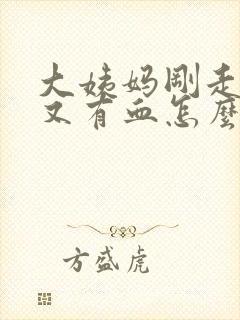 大姨妈刚走
又有血怎麽
方盛虎